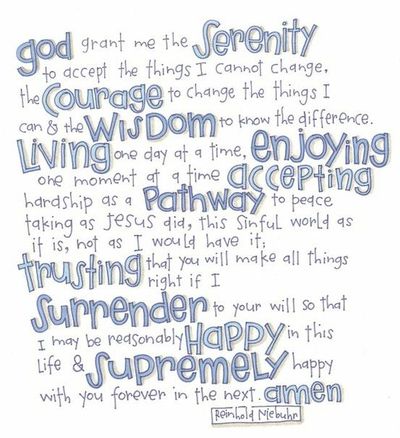 god grant me the Serenity
to accept the things I cannot change,
the Courage to change the things I
can & the WISDOM to know the difference.
LIVING one day at a time, enjoying
one moment at a time accepting
hardship as a Pathway to peace
taking as Jesus did, this sinful world as
it is, not as I would have it;
trusting that you will make all things
right if I
Surrender to your will so that
I may be reasonably HAPPY in this
Life & SUPREMELY happy
with you forever in the next. amen
Reinhold Niebuhr